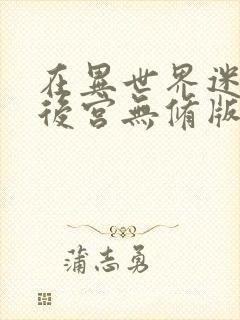 在異世界迷
後宮無修版
蒲志勇